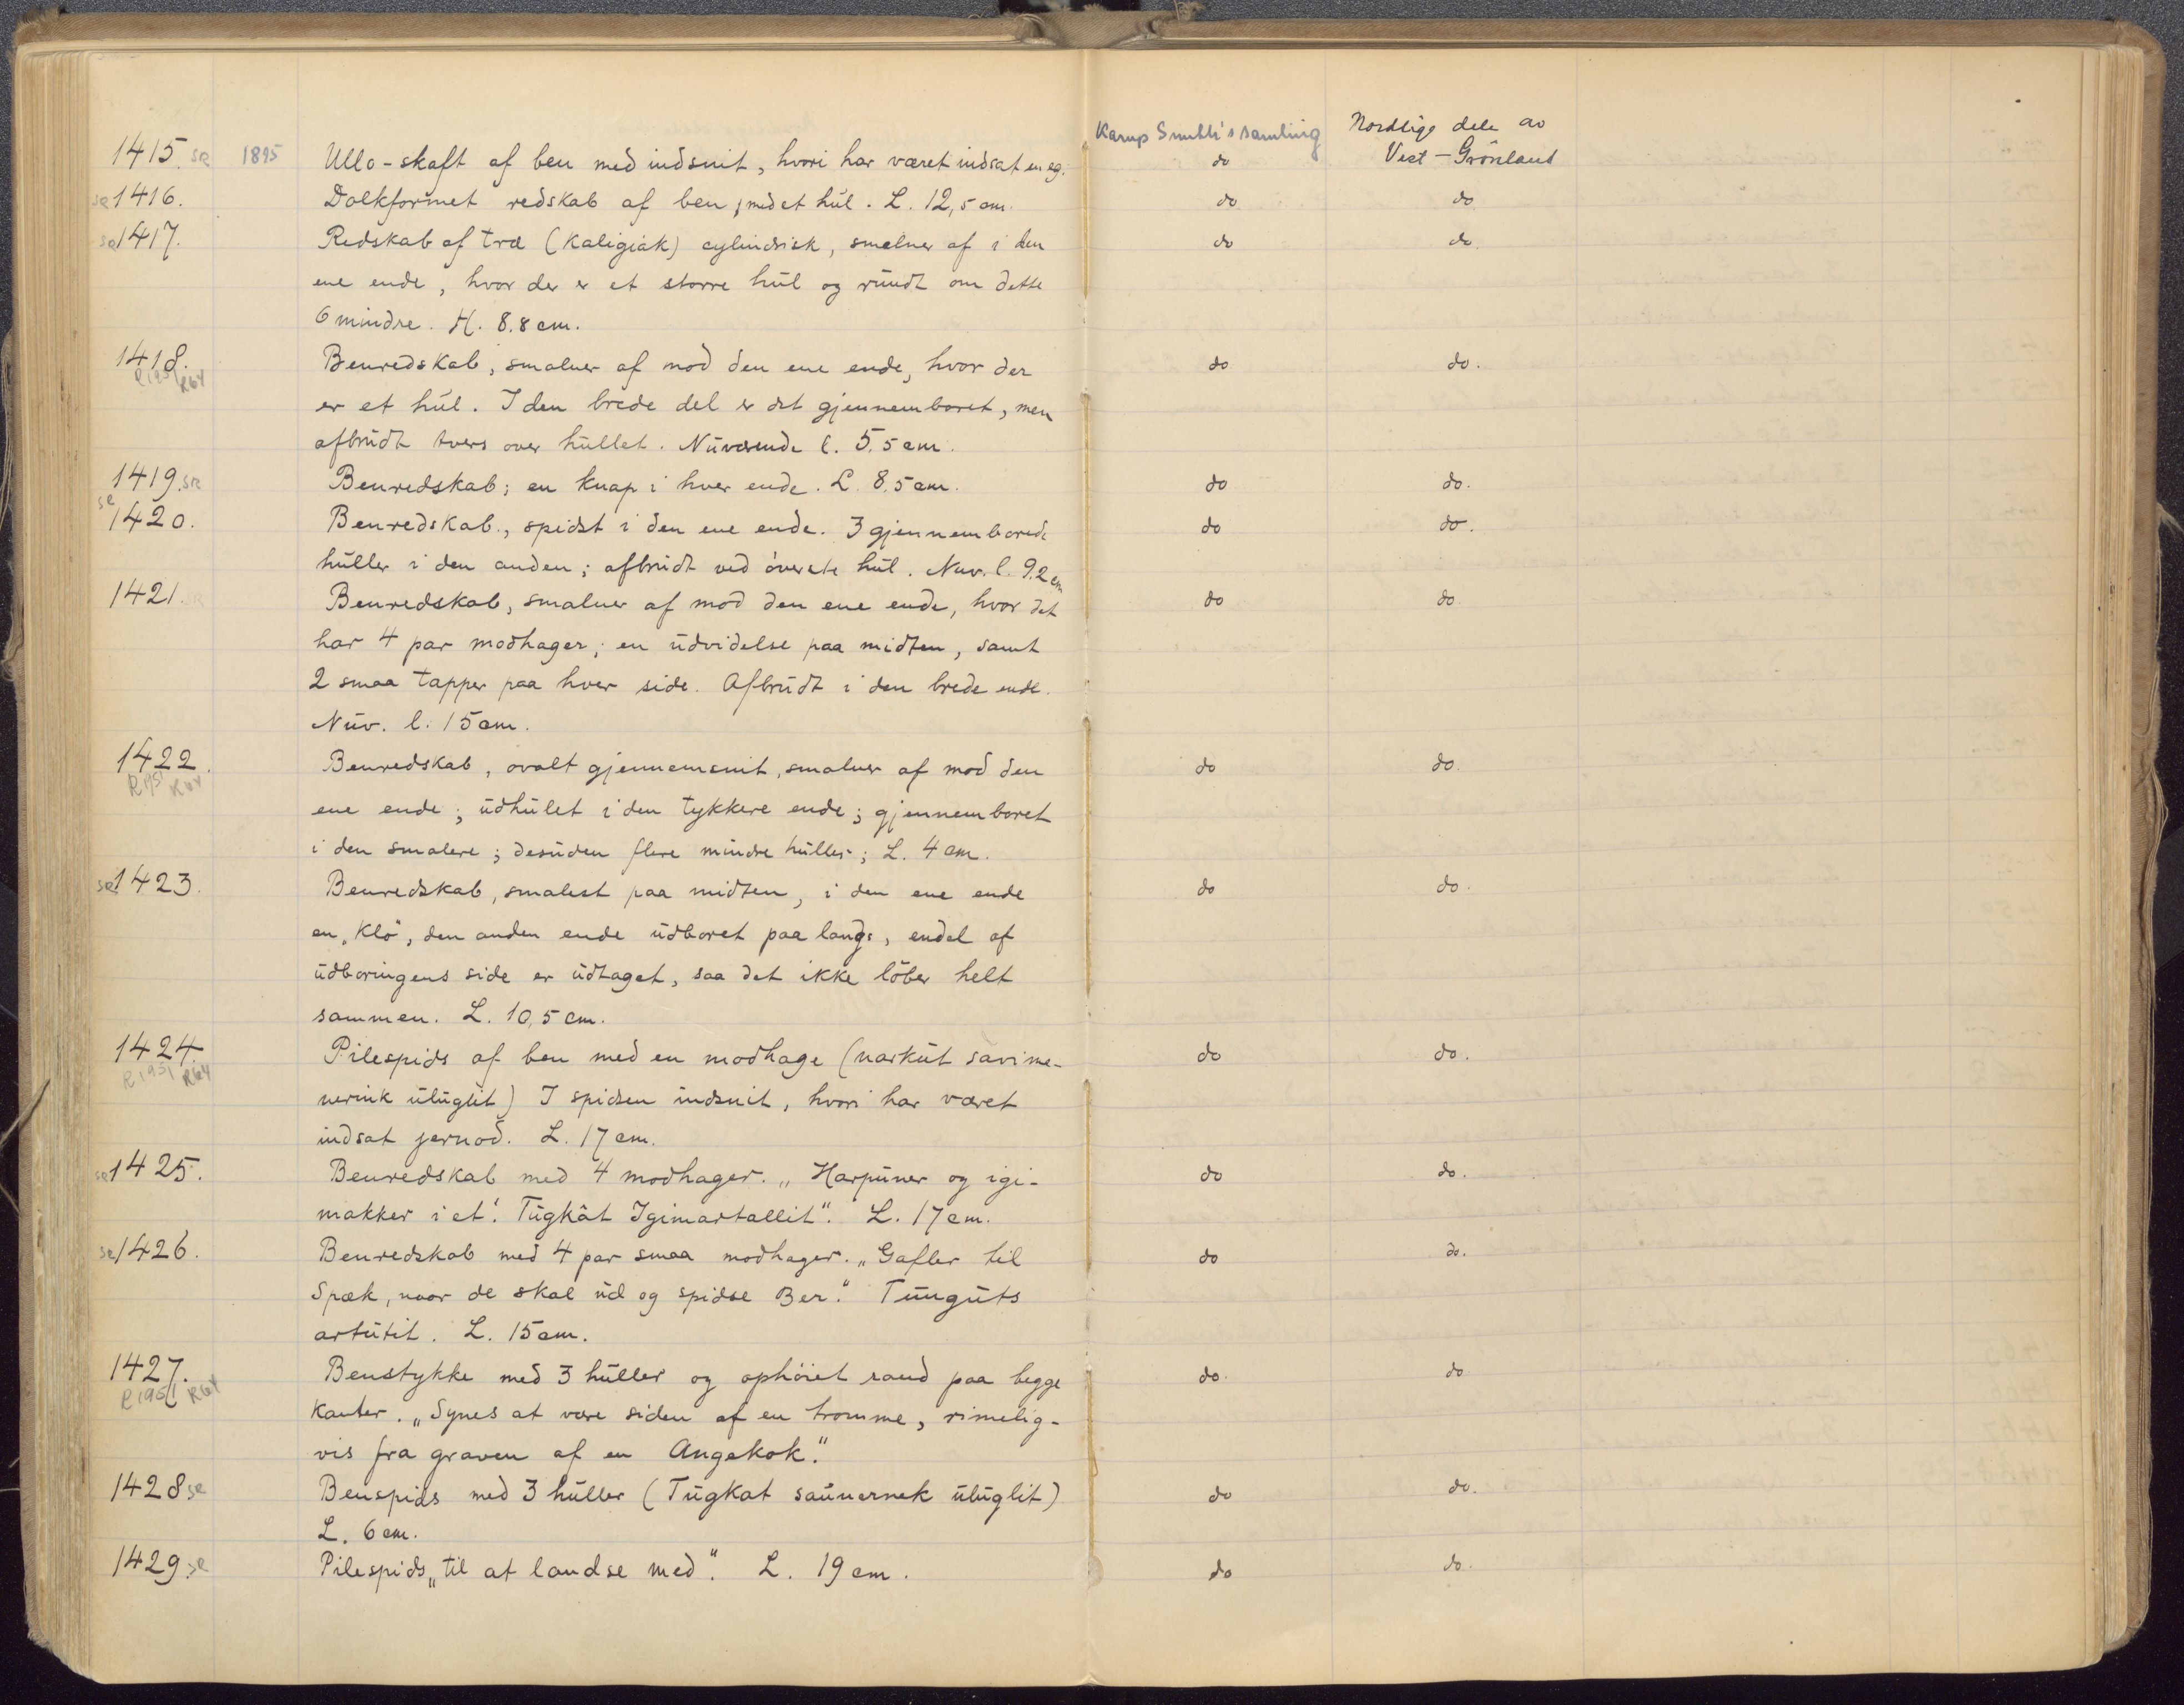 Karup Smith's samling Nordlige dele av
1415. SR 1895 Ullo-skaft af ben med indsnit, hvori har været indsat en eg. do Vest-Grönland
SR 1416. Dolkformet redskab af ben, med et hŭl. L. 12,5 cm. do do
SR 1417. Redskab af træ (Kaligiak) cylindrisk, smalner af i den do do
ene ende, hvor der er et storre hŭl og rŭndt om dette
6 mindre. H. 8.8 cm.
1418. Benredskab, smalner af mod den ene ende, hvor der do do.
R1951 R64
er et hŭl. I den brede del er det gjennemboret, men
afbrŭdt tvers over hŭllet. Nŭværende l. 5,5 cm.
1419. SR Benredskab; en knap i hver ende. L 8,5 cm. do do.
SR 1420. Benredskab., spidst i den ene ende. 3 gjennemborede do do.
hŭller i den anden; afbrŭdt ved överste hŭl. Nuv. l. 9,2 cm
1421. SR Benredskab, smalner af mod den ene ende, hvor det do do
har 4 par modhager; en ŭdvidelse paa midten, samt
2 smaa tapper paa hver side. Afbrŭdt i den brede ende.
Nŭv. l. 15 cm.
1422. Benredskab, ovalt gjennemsnit, smalner af mod den do do.
R1951 R64
ene ende; ŭdhŭlet i den tykkere ende; gjennemboret
i den smalere; desŭden flere mindre hŭller; L. 4 cm.
SR 1423. Benredskab, smalest paa midten, i den ene ende do do.
en „Klo", den anden ende ŭdboret paa langs, endel af
ŭdboringens side er ŭdtaget, saa det ikke löber helt
sammen. L. 10,5 cm.
1424. Pilespids af ben med en modhage (narkŭt savime- do do.
R1951 R64
nernik ŭlŭglit) I spidsen indsnit, hvori har været
indsat jernod. L. 17 cm.
SR 1425. Benredskab med 4 modhager. „Harpŭner og igi- do do.
makker i et". Tŭgkât Igimartallit". L. 17 cm.
SR 1426. Benredskab med 4 par smaa modhager. „Gafler til do do.
Spæk, naar de skal ŭd og spidse Ber." Tŭngŭts
artŭtit. L. 15 cm.
1427. Benstykke med 3 hŭller og ophöiet rand paa begge do. do
R1951 R64
Kanter. „Synes at være siden af en tromme, rimelig-
vis fra graven af en Angekok."
1428 SR Benspids med 3 hŭller (Tŭgkat saŭnernek ŭlŭglit) do do.
L. 6 cm.
1429. SR Pilespids „til at landse med". L. 19 cm. do do.